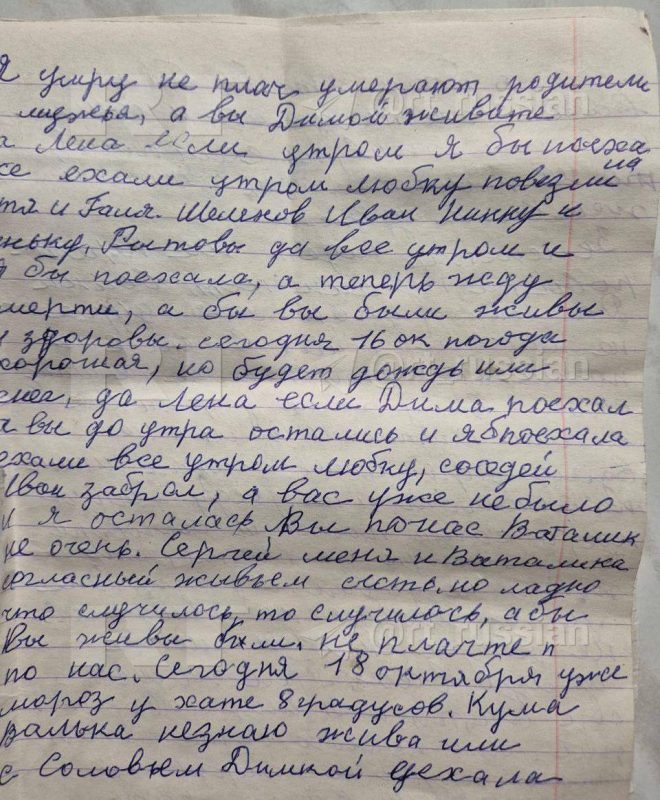 Я умру не плач умерают родители
а вы Димой живите
Лена если утром я бы поеха
ехали утром любку повезли на
и Галя. Шеленов Иван Нинку и
да все утром и
бы поехала, а теперь жду
мерти, а бы вы были живы
и здоровы. сегодня 16 ок погода
хорошая, но будет дождь или
снег, да Лена если Дима поехал
а вы до утра остались и я б поехала
ехали все утром любку, соседей
Иван забрал, а вас уже небыло
и я осталась Вы
не очень. Сергей меня и Ваталика
огласный живьем сьесть но ладно
что случилось, то случилось, абы
Вы живы были. не плачте п
по нас. Сегодня 18 октября уже
мороз у хате 8 градусов. Кума
Валька незнаю жива или
с Соловьем Димкой уехала
@rt_russian
@rt_russian
@rt_russian